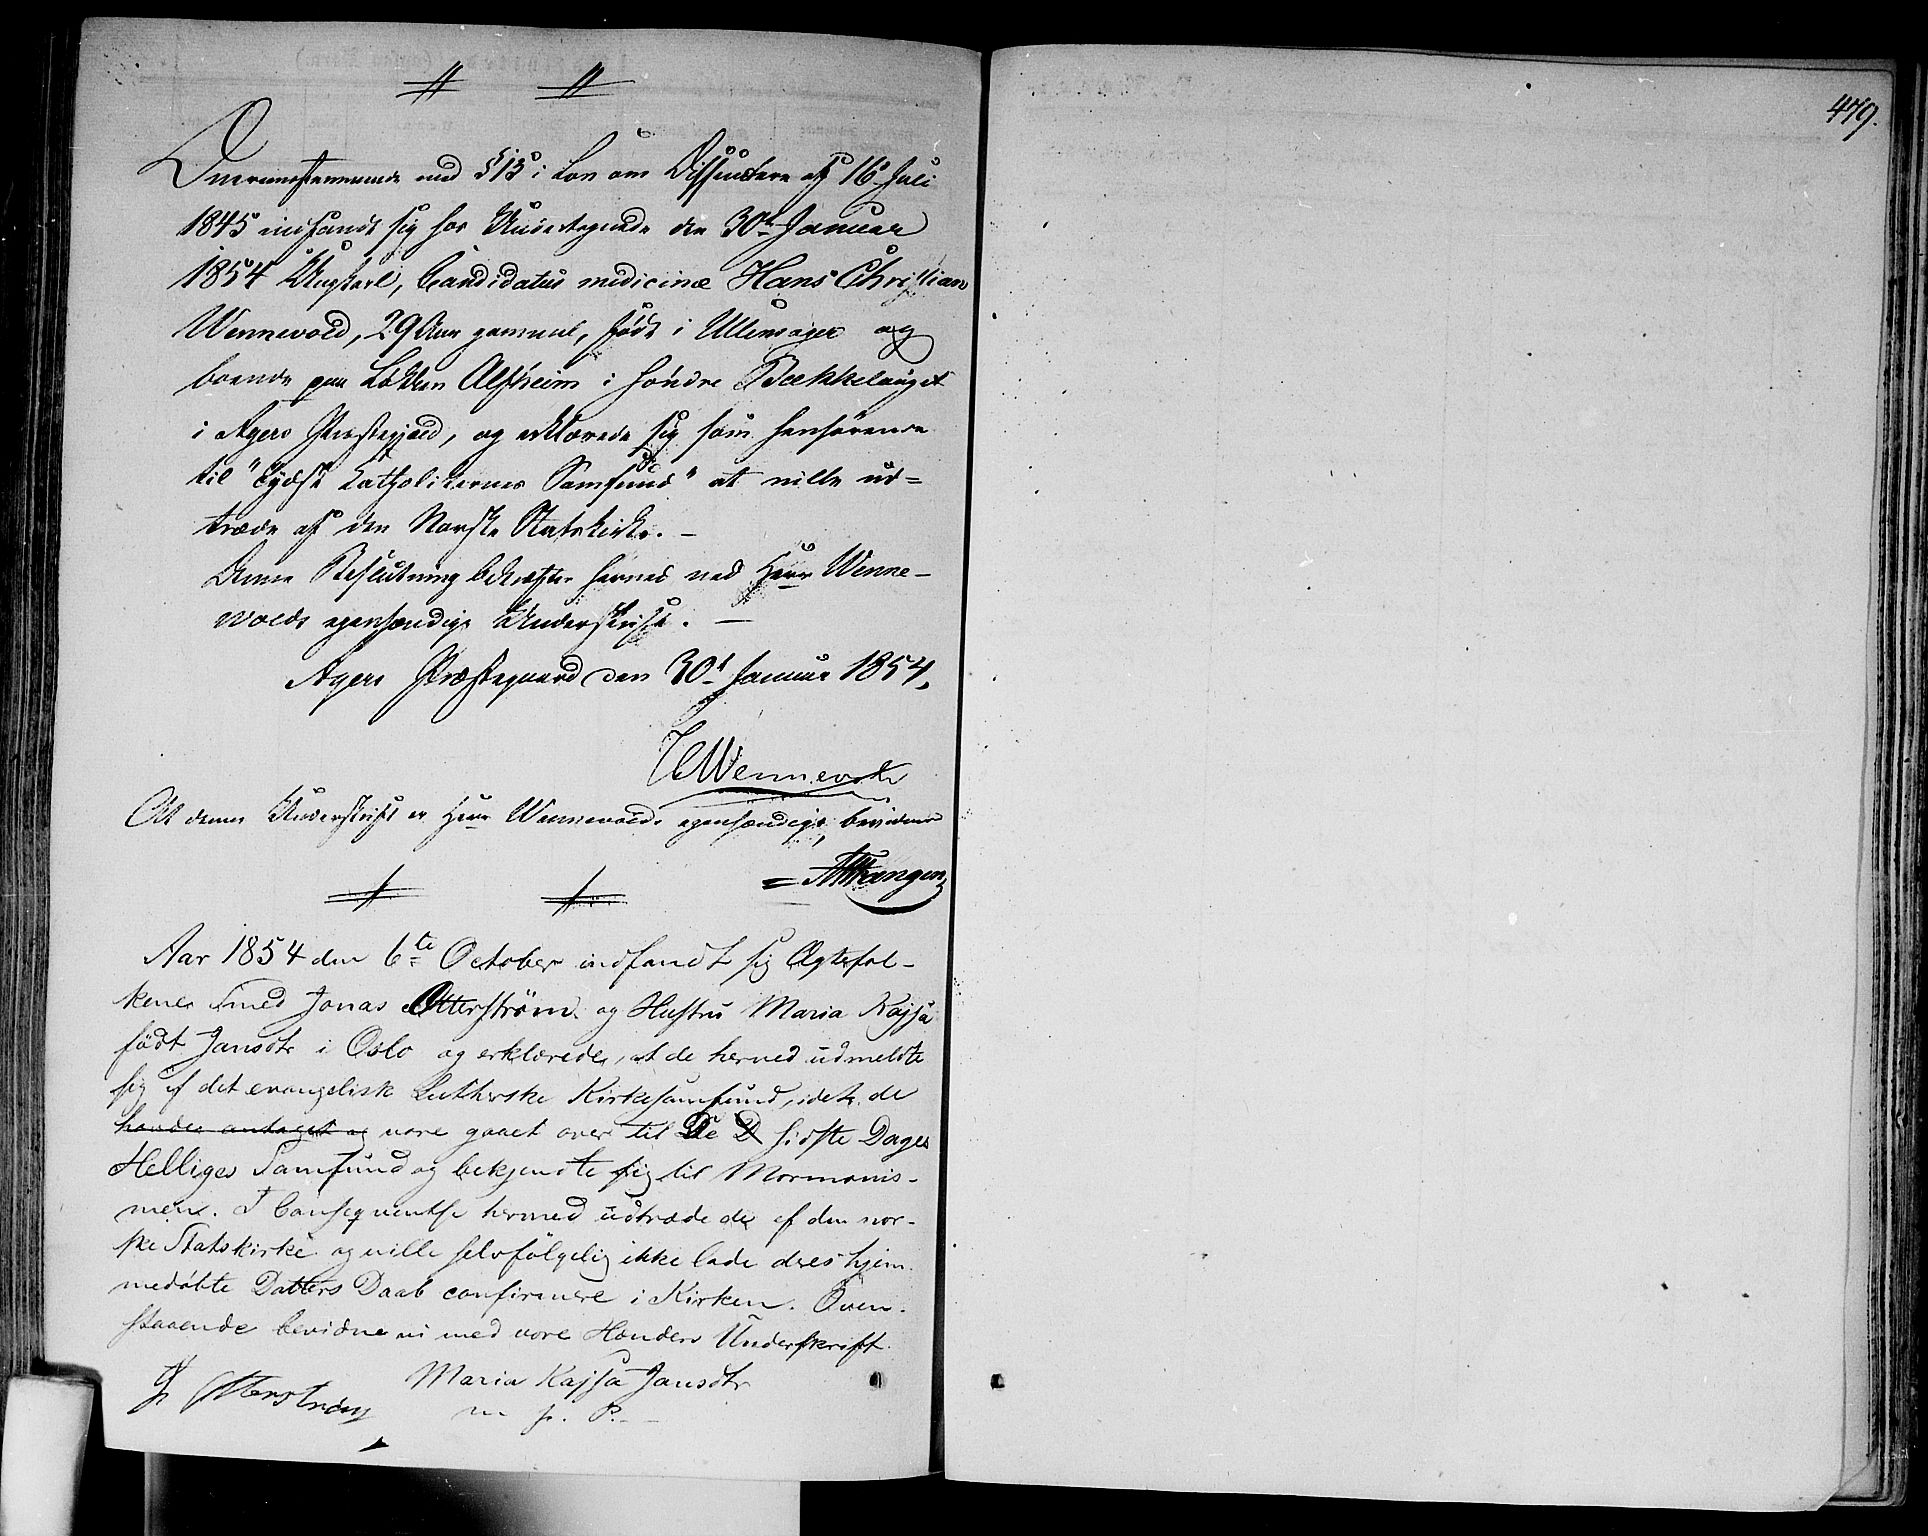 479.
Overeensstemmende med § 13 i Lov om Dissentere af 16 Juli
1845 indfandt sig hos Undertegnede den 30te Januar
1854 Ungkarl, Candidatus medicinæ Hans Christian
Wennevold, 29 Aar gammel, født i Ullensager og
boende paa Løkken Alfheim i søndre Bækkelauget
i Agers Præstegjæld, og erklærede sig som henhørende
til "tydsk Catholikernes Samfund" at ville ud=
træde af den Norske Statskirke. —
Denne Beslutning bekræftes herved ved Herr Wenne-
volds egenhændige Underskrift. —
Agers Præstegaard den 30t Januar 1854.
HCWennevold
At denne Underskrift er Herr Wennevolds egenhændige, bevidner
= AWrangen
Aar 1854 den 6te October indfandt sig Ægtefol-
kene Smed Jonas Otterstrøm og Hustru Maria Kajsa
født Jansdtr i Oslo og erklærede, at de herved udmeldte
sig af det evangelisk Lutherske Kirkesamfund, idet de
havde antaget og vare gaaet over til De D sidste Dages
Helliges Samfund og bekjendte sig til Mormonis-
men. I Consequentse hermed udtræde de af den nor-
ske Statskirke og ville selvfølgelig ikke lade deres hjem-
medøbte Datters Daab confirmere i Kirken. Oven-
staaende bevidne vi med vore Hænders Underskrift.
J Otterstrøm Maria Kajsa Jansdtr
m. f. P. —